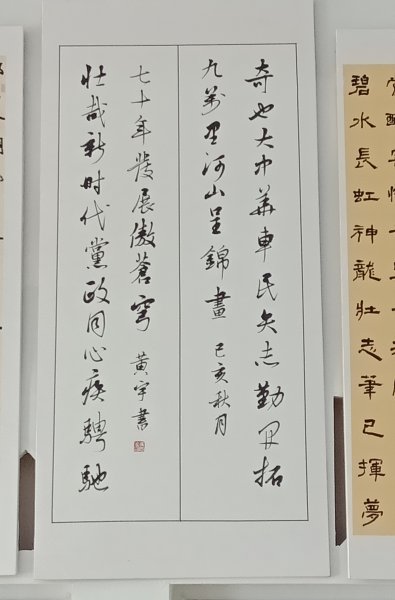 奇也大中華軍民矢志勤開拓
九萬里河山呈錦畫 己亥秋月
壯哉新时代黨政同心疾騁馳
七十年發展傲蒼穹 黃宇書
碧水長虹神龍壯志筆已揮夢